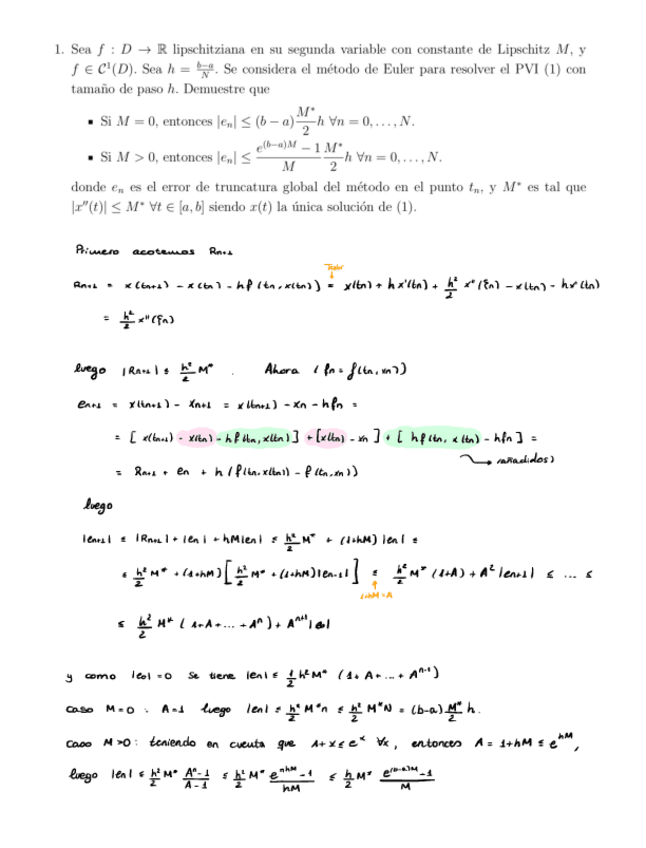 1. Sea f : D → ℝ lipschitziana en su segunda variable con constante de Lipschitz M, y
f ∈ 𝒞¹(D). Sea h = (b−a)/N. Se considera el método de Euler para resolver el PVI (1) con
tamaño de paso h. Demuestre que
▪ Si M = 0, entonces |eₙ| ≤ (b − a) M*/2 h ∀n = 0, . . . , N.
▪ Si M > 0, entonces |eₙ| ≤ (e^{(b−a)M} − 1)/M M*/2 h ∀n = 0, . . . , N.
donde eₙ es el error de truncatura global del método en el punto tₙ, y M* es tal que
|x''(t)| ≤ M* ∀t ∈ [a, b] siendo x(t) la única solución de (1).
Primero acotemos Rₙ₊₁
Taylor
Rₙ₊₁ = x(tₙ₊₁) − x(tₙ) − hf(tₙ, x(tₙ)) = x(tₙ) + hx'(tₙ) + h²/2 x''(ξₙ) − x(tₙ) − hx'(tₙ)
= h²/2 x''(ξₙ)
luego |Rₙ₊₁| ≤ h²/2 M* . Ahora (fₙ = f(tₙ, xₙ))
eₙ₊₁ = x(tₙ₊₁) − xₙ₊₁ = x(tₙ₊₁) − xₙ − hfₙ =
= [x(tₙ₊₁) − x(tₙ) − hf(tₙ, x(tₙ))] + [x(tₙ) − xₙ] + [hf(tₙ, x(tₙ)) − hfₙ] =
(añadidos)
= Rₙ₊₁ + eₙ + h(f(tₙ, x(tₙ)) − f(tₙ, xₙ))
luego
|eₙ₊₁| ≤ |Rₙ₊₁| + |eₙ| + hM|eₙ| ≤ h²/2 M* + (1+hM)|eₙ| ≤
≤ h²/2 M* + (1+hM)[h²/2 M* + (1+hM)|eₙ₋₁|] ≤ h²/2 M* (1+A) + A²|eₙ₊₁| ≤ ... ≤
1+hM=A
≤ h²/2 M* (1+A+...+Aⁿ) + Aⁿ⁺¹|e₀|
y como |e₀| = 0 se tiene |eₙ| ≤ 1/2 h² M* (1+A+...+Aⁿ⁻¹)
caso M=0 : A=1 luego |eₙ| ≤ h²/2 M* n ≤ h²/2 M* N = (b−a) M*/2 h.
Caso M>0: teniendo en cuenta que 1+x ≤ eˣ ∀x, entonces A = 1+hM ≤ e^{hM},
luego |eₙ| ≤ h²/2 M* (Aⁿ−1)/(A−1) ≤ h²/2 M* (e^{nhM}−1)/(hM) ≤ h/2 M* (e^{(b−a)M}−1)/M